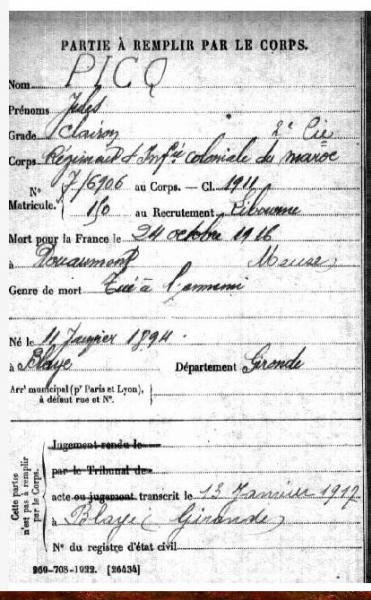 PARTIE À REMPLIR PAR LE CORPS.
Nom PICQ
Prénoms Jules
Grade Clairon 2e Cie
Corps Régiment d'Infie coloniale du maroc
N° 7/6906 au Corps. — Cl. 1911
Matricule. 150 au Recrutement Libourne
Mort pour la France le 24 octobre 1916
à Douaumont Meuse
Genre de mort Tué à l'ennemi
Né le 11 Janvier 1894
à Blaye Département Gironde
Arrt municipal (pr Paris et Lyon),
à défaut rue et N°.
Cette partie n'est pas à remplir par le Corps.
Jugement rendu le
par le Tribunal de
acte ou jugement transcrit le 13 Janvier 1917
à Blaye (Gironde)
N° du registre d'état civil
269-708-1922. [26434]